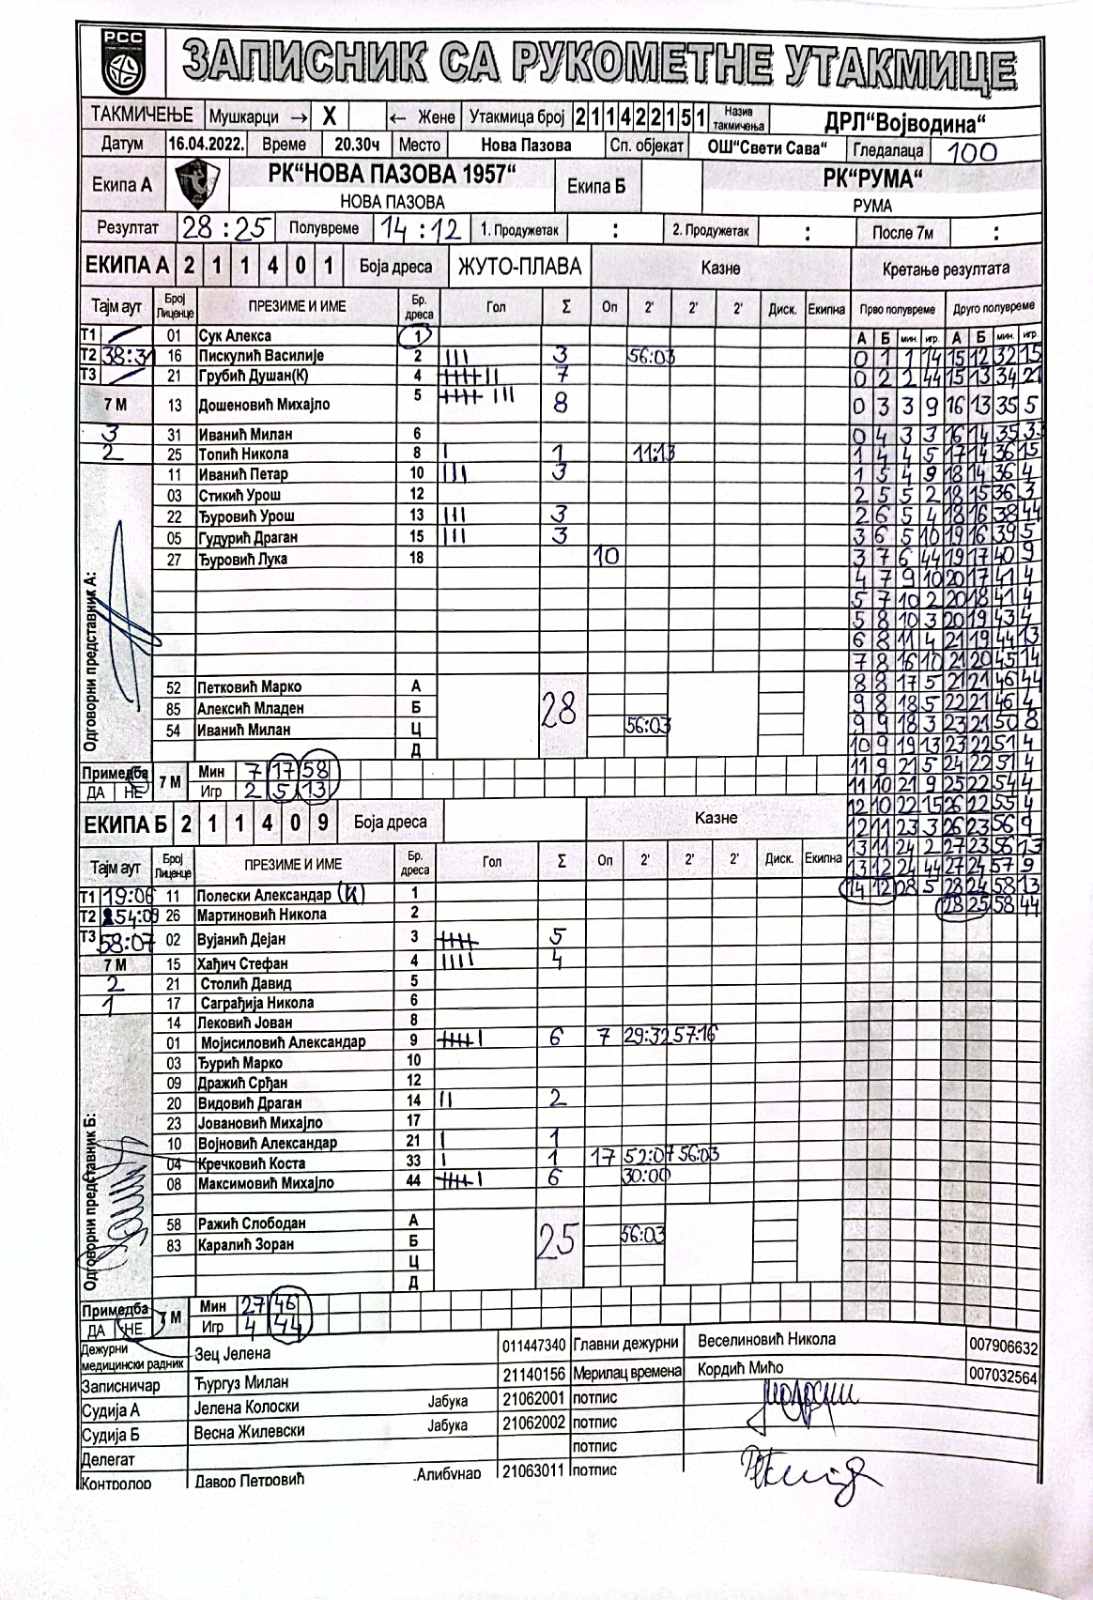 РСС
ЗАПИСНИК СА РУКОМЕТНЕ УТАКМИЦЕ
ТАКМИЧЕЊЕ Мушкарци → X ← Жене Утакмица број 211422151 Назив такмичења ДРЛ“Војводина“
Датум 16.04.2022. Време 20.30ч Место Нова Пазова Сп. објекат ОШ“Свети Сава“ Гледалаца 100
Екипа А РК“НОВА ПАЗОВА 1957“ Екипа Б РК“РУМА“
НОВА ПАЗОВА РУМА
Резултат 28:25 Полувреме 14:12 1. Продужетак : 2. Продужетак : После 7м :
ЕКИПА А 2 1 1 4 0 1 Боја дреса ЖУТО-ПЛАВА Казне Кретање резултата
Тајм аут Број Лиценце ПРЕЗИМЕ И ИМЕ Бр. дреса Гол Σ Оп 2' 2' 2' Диск. Екипна Прво полувреме Друго полувреме
А Б мин. игр. А Б мин. игр.
Т1 01 Сук Алекса 1
Т2 38:31 16 Пискулић Василије 2 III 3 56:03 0 1 1 14 15 12 32 15
Т3 21 Грубић Душан(К) 4 IIIII II 7 0 2 2 44 15 13 34 21
7 М 13 Дошеновић Михајло 5 IIIII III 8 0 3 3 9 16 13 35 5
3 31 Иванић Милан 6 0 4 3 3 16 14 35 33
2 25 Топић Никола 8 I 1 11:13 1 4 4 5 17 14 36 15
11 Иванић Петар 10 III 3 1 5 4 9 18 14 36 4
03 Стикић Урош 12 2 5 5 2 18 15 36 3
22 Ђуровић Урош 13 III 3 2 6 5 4 18 16 38 44
05 Гудурић Драган 15 III 3 3 6 5 10 19 16 39 5
27 Ђуровић Лука 18 10 3 7 6 44 19 17 40 9
4 7 9 10 20 17 41 4
5 7 10 2 20 18 41 4
5 8 10 3 20 19 43 4
6 8 11 4 21 19 44 13
7 8 16 10 21 20 45 14
Одговорни представник А:
52 Петковић Марко А 28 8 8 17 5 21 21 46 44
85 Алексић Младен Б 9 8 18 5 22 21 46 4
54 Иванић Милан Ц 56:03 9 9 18 3 23 21 50 8
Д 10 9 19 13 23 22 51 4
Примедба 7 М Мин 7 17 58 11 9 21 5 24 22 51 4
ДА НЕ Игр 2 5 13 11 10 21 9 25 22 54 4
12 10 22 15 26 22 55 4
ЕКИПА Б 2 1 1 4 0 9 Боја дреса Казне 12 11 23 3 26 23 56 9
13 11 24 2 27 23 56 13
Тајм аут Број Лиценце ПРЕЗИМЕ И ИМЕ Бр. дреса Гол Σ Оп 2' 2' 2' Диск. Екипна 13 12 24 44 27 24 57 9
Т1 19:06 11 Полески Александар (К) 1 14 12 28 5 28 24 58 13
Т2 54:09 26 Мартиновић Никола 2 28 25 58 44
Т3 58:07 02 Вујанић Дејан 3 IIIII 5
7 М 15 Хаћич Стефан 4 IIII 4
2 21 Столић Давид 5
1 17 Саграђија Никола 6
14 Лековић Јован 8
01 Мојисиловић Александар 9 IIIII I 6 7 29:32 57:16
03 Ђурић Марко 10
09 Дражић Срђан 12
20 Видовић Драган 14 II 2
23 Јовановић Михајло 17
10 Војновић Александар 21 I 1
04 Кречковић Коста 33 I 1 17 52:07 56:03
08 Максимовић Михајло 44 IIIII I 6 30:00
Одговорни представник Б:
58 Ражић Слободан А 25
83 Каралић Зоран Б 56:03
Ц
Д
Примедба 7 М Мин 27 46
ДА НЕ Игр 4 44
Дежурни медицински радник Зец Јелена 011447340 Главни дежурни Веселиновић Никола 007906632
Записничар Ђургуз Милан 21140156 Мерилац времена Кордић Мићо 007032564
Судија А Јелена Колоски Јабука 21062001 потпис
Судија Б Весна Жилевски Јабука 21062002 потпис
Делегат потпис
Контролор Давор Петровић .Алибунар 21063011 потпис